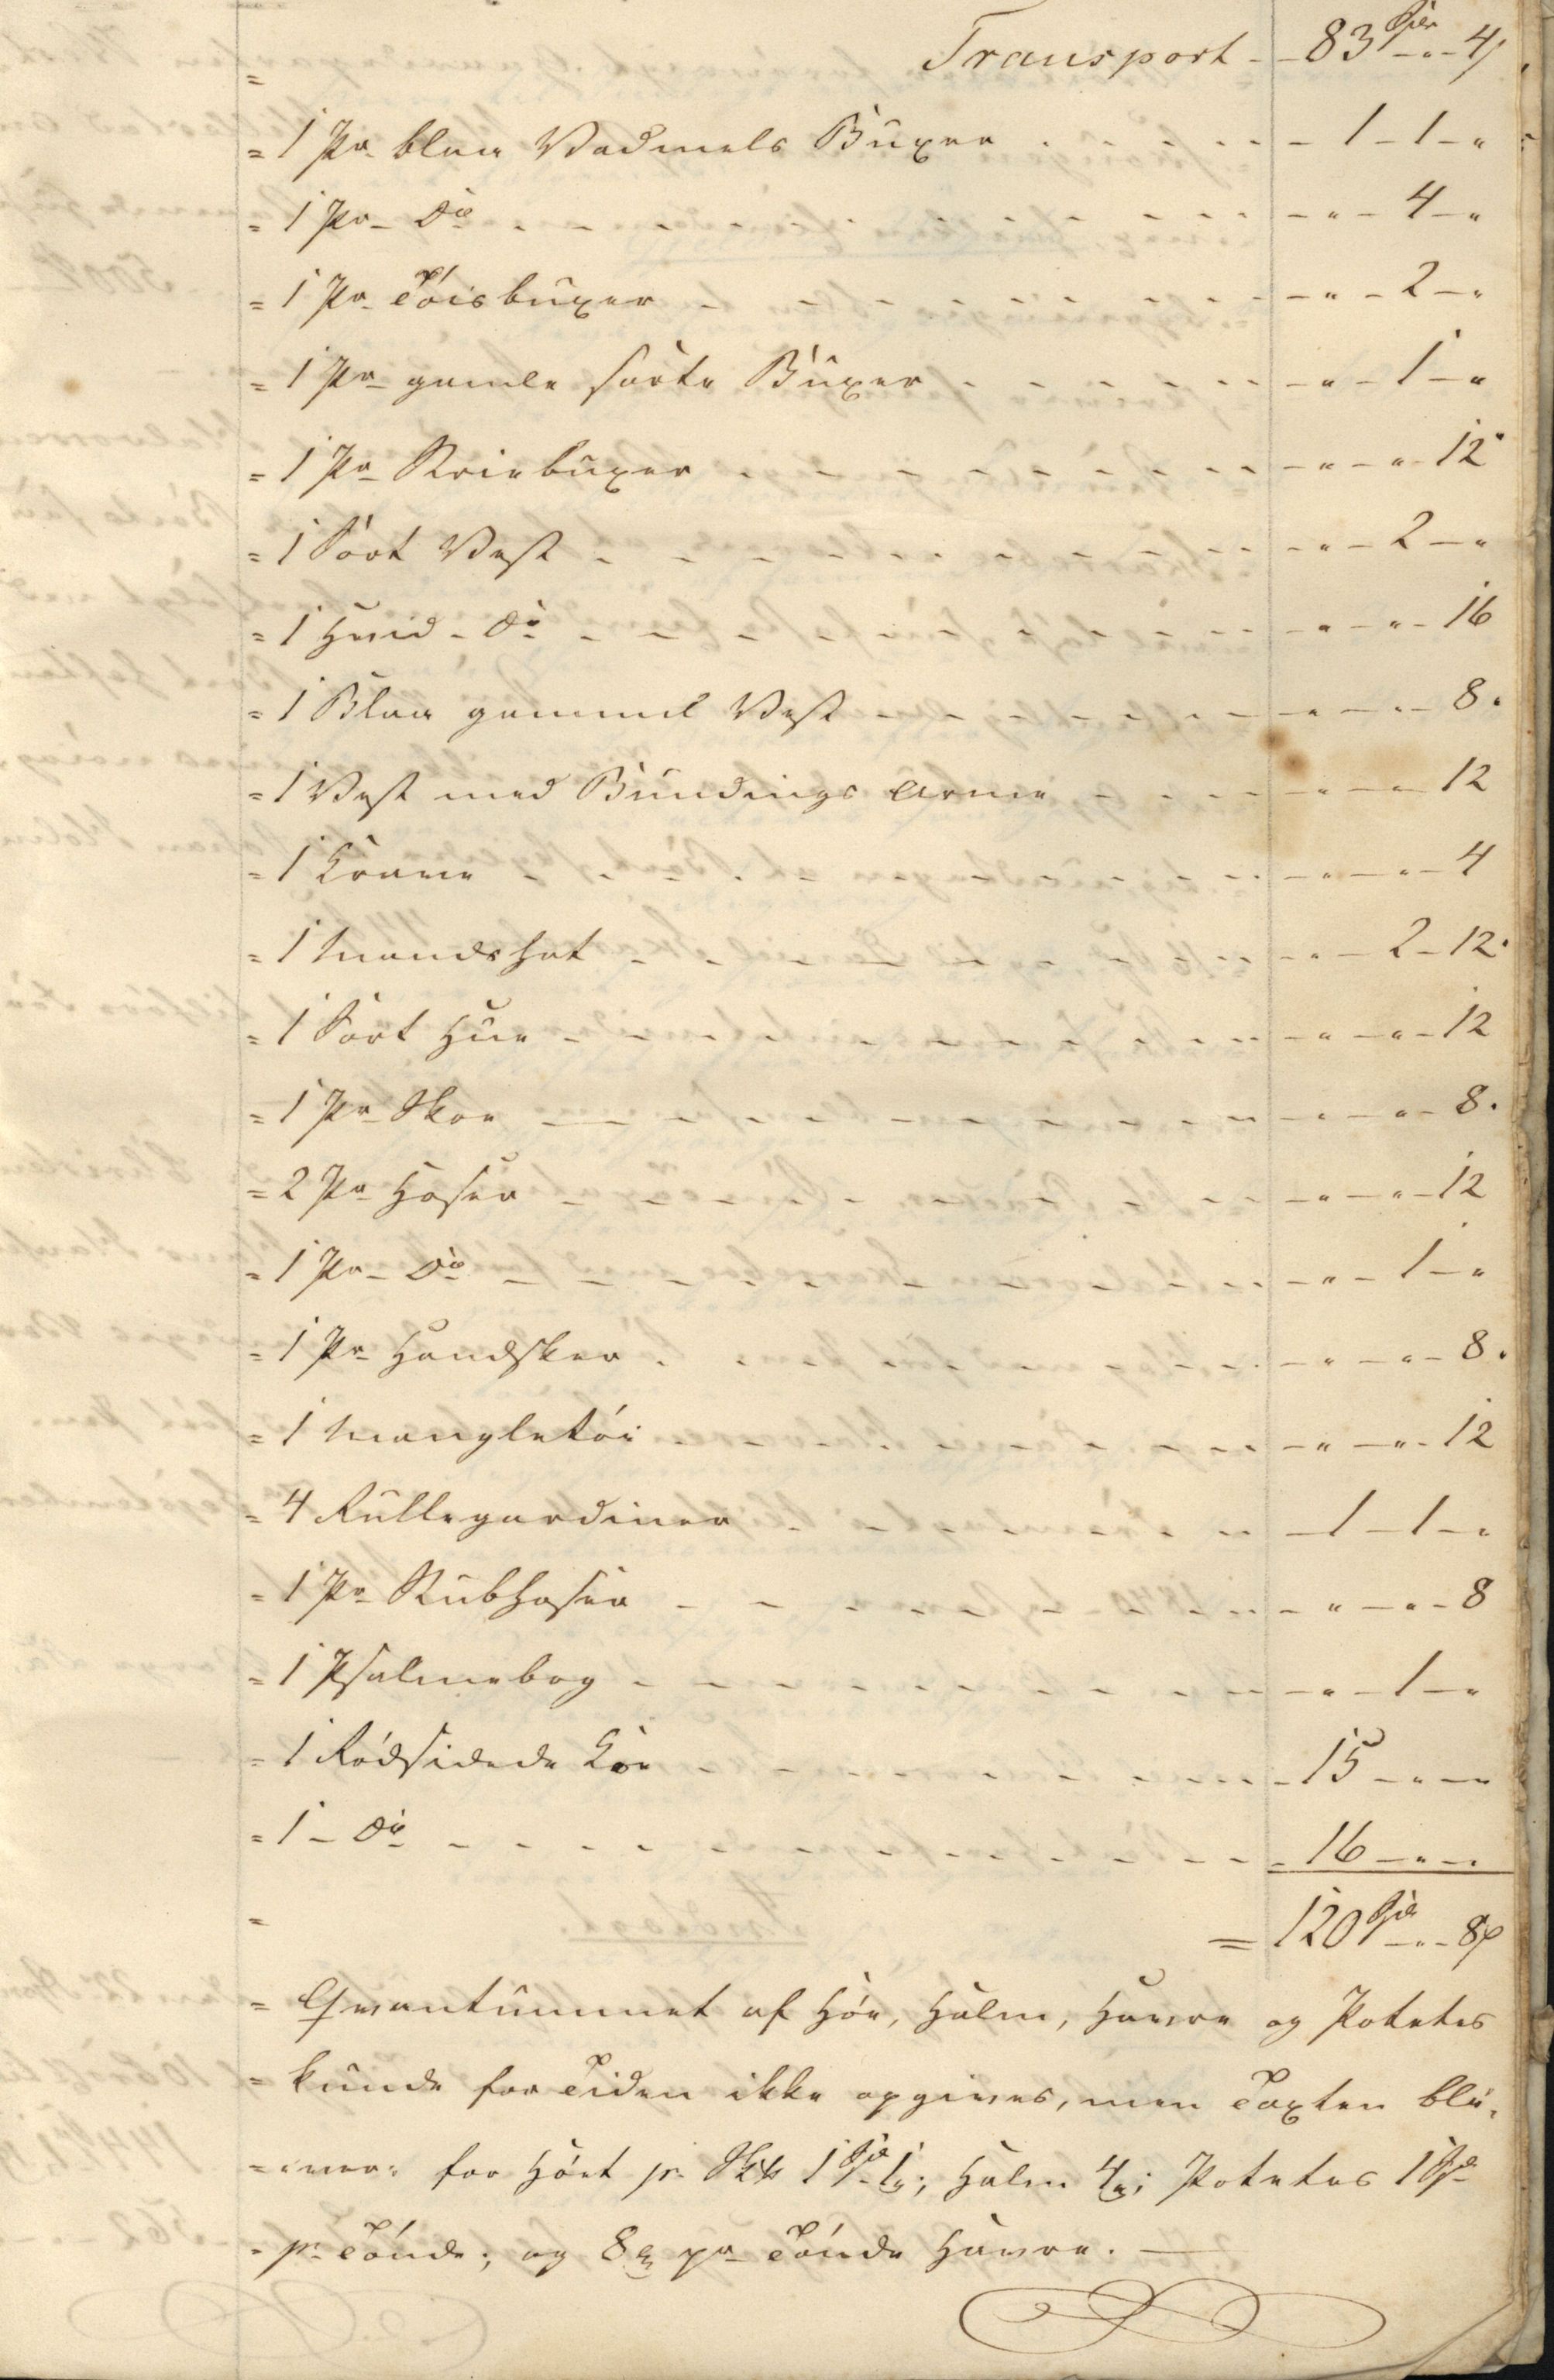 Transport - - 83 Spdr - „ - 4ß
= 1 Pr blaa Vadmels Buxer - 1 - 1 - „
= 1 Pr - Do - „ - 4 - „
= 1 Pr Töisbuxer - „ - 2 - „
= 1 Pr gamle sorte Buxer - „ - 1 - „
= 1 Pr Striebuxer - „ - „ - 12
= 1 Sort Vest - „ - 2 - „
= 1 Hvid - Do - „ - „ - 16
= 1 Blaa gammel Vest - „ - „ - 8
= 1 Vest med Bundings Arme - „ - „ - 12
= 1 Krave - „ - „ - 4
= 1 Mandshat - „ - 2 - 12
= 1 Sort Hue - „ - „ - 12
= 1 Pr Skoe - „ - „ - 8
= 2 Pr Hoser - „ - „ - 12
= 1 Pr - Do - „ - 1 - „
= 1 Pr Handsker - „ - „ - 8
= 1 Mangletöi - „ - „ - 12
= 4 Rullegardiner - 1 - 1 - „
= 1 Pr Stubhoser - „ - „ - 8
= 1 Psalmebog - „ - 1 - „
= 1 Rödsidede Koe - 15 - „ - „
= 1 - Do - 16 - „ - „
= 120 Spd - „ - 8ß
= Qvantummet af Höe, Halm, Havre og Potetes
= kunde for Tiden ikke opgives, men Taxten ble-
= „ver: for Höet pr 1 Spd 1; Halm 4; Potetes 1 Spd
= pr Tönde; og 8 pr Tönde Havre. —